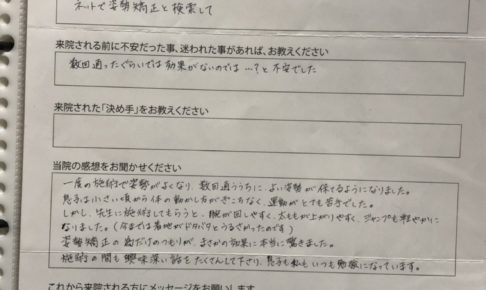 ネットで姿勢矯正と検索して
来院される前に不安だった事、迷われた事があれば、お教えください
数回通ったぐらいでは効果がないのでは…?と不安でした
来院された「決め手」をお教えください
当院の感想をお聞かせください
一度の施術で姿勢がよくなり、数回通ううちに、よい姿勢が保てるようになりました。
息子は小さい頃から体の動かし方がぎこちなく、運動がとても苦手でした。
しかし、先生に施術してもらうと、腕が回しやすく、太ももが上がりやすく、ジャンプも軽やかに
なりました。(今までは着地がドタバタとうるさかったのです)
姿勢矯正の為だけのつもりが、まさかの効果に本当に驚きました。
施術の間も興味深い話をたくさんして下さり、息子も私もいつも勉強になっています。
これから来院される方にメッセージをお願いします